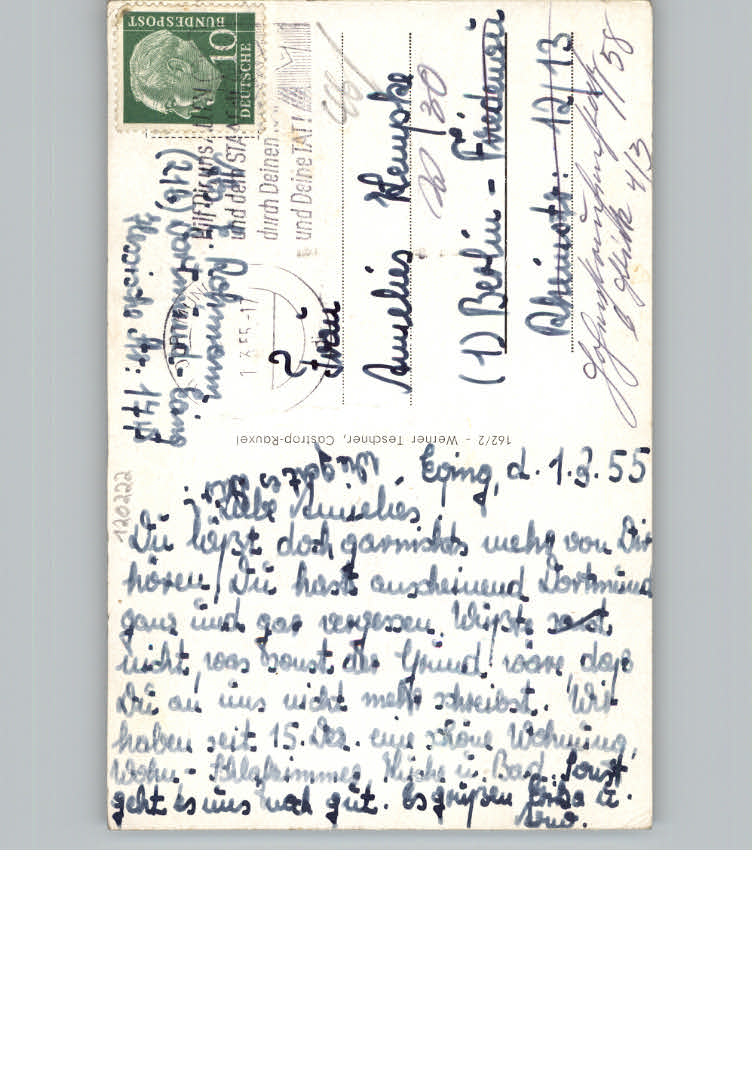 Eving, d. 1.3.55
Wie geht es Dir?
Liebe Annelies
Du läßt doch garnichts mehr von Dir
hören! Du hast anscheinend Dortmund
ganz und gar vergessen. Wüßte sonst
nicht, was sonst der Grund wäre, daß
Du an uns nicht mehr schreibst. Wir
haben seit 15. Dez. eine schöne Wohnung,
Wohn- Schlafzimmer, Küche u. Bad. Sonst
geht es uns noch gut. Es grüßen Erika u.
162/2 - Werner Teschner, Castrop-Rauxel
DEUTSCHE
BUNDESPOST
10
HILF DIR UND ALLEN
und dem STAAT
durch Deinen
und Deine TAT!
1.3.55.-17
(21b) Dortmund-Eving
Frau
Annelies Klempke
(1) Berlin-Friedenau
Rheinstr. 12/13
W 30
120222